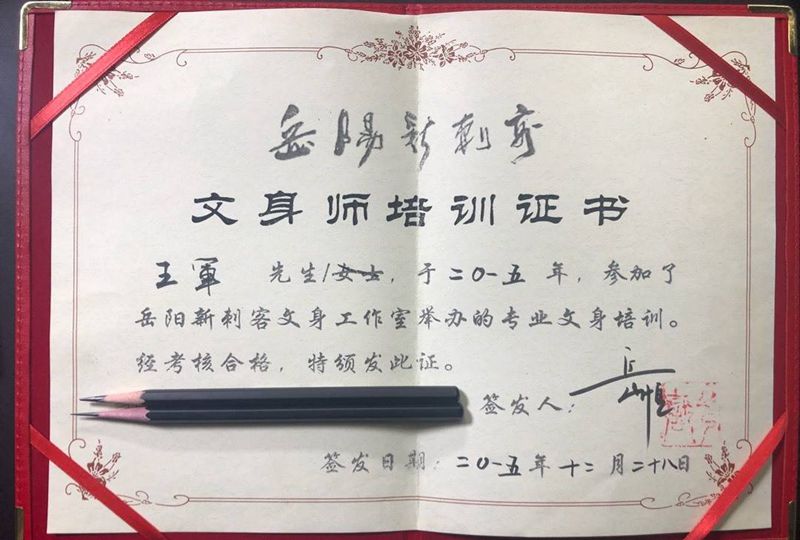 岳陽新刺客
文身师培训证书
王軍 先生/女士，于二〇一五年，参加了
岳阳新刺客文身工作室举办的专业文身培训。
经考核合格，特颁发此证。
签发人：
签发日期：二〇一五年十二月二十八日